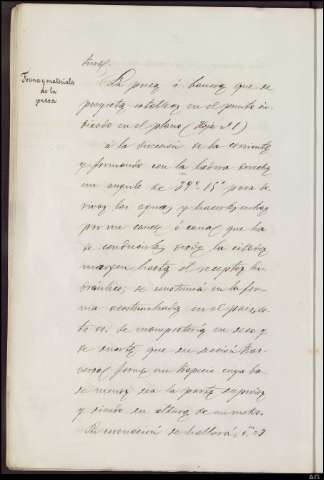 tines.
Forma y materiales
de la
presa
La presa ó barrera que se
proyecta establecer en el punto in-
dicado en el plano (Hoja nº 1)
á la dirección de la corriente
y formando con la ladera derecha
un angulo de 79º 15' para de
rivar las aguas y hacerlas entrar
por un cauce ó canal que ha
de conducirlas desde la
margen hasta el receptor hi-
dráulico, se construirá en la for-
ma acostumbrada en el pais, es-
to es, de mampostería en seco y
de suerte que su sección tras-
versal forme un trapecio cuya ba-
se menor sea la parte superior
y siendo su altura de un metro.
Su coronación se hallará á